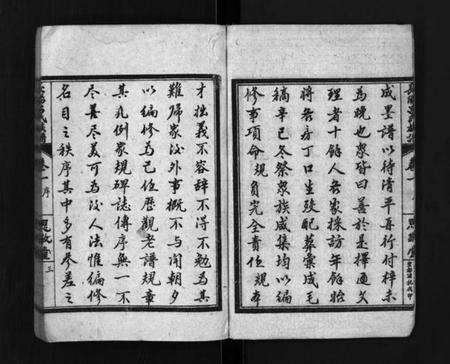 成墨譜以待清平再行付梓未
為晚也衆皆曰善於是擇通文
理者十餘人各家採訪年餘始
將各房丁口生歿配葬彙成毛
稿辛巳冬祭衆族咸集均以編
修事項命規負完全責任規本
才拙義不容辭不得不勉為其
難歸家後外事概不與聞朝夕
以編修為己任歷觀老譜規章
其凡例家規碑誌傳序無一不
盡善盡美可為後人法惟編修
名目之秩序其中多有參差之
卷一 序
思敬堂
三